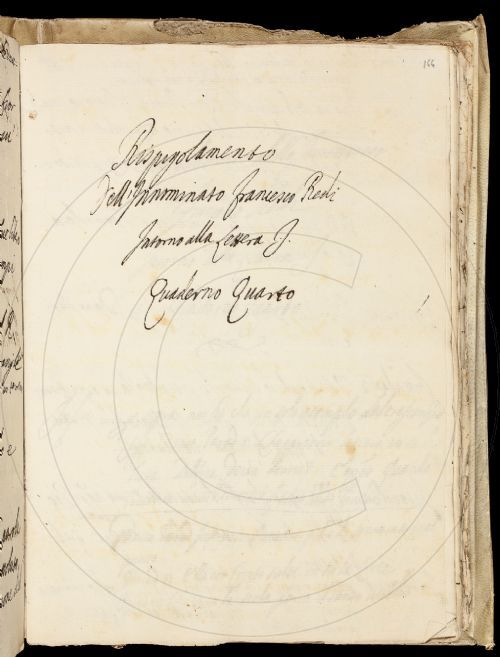 166
Rispigolamento
Dell'Innominato Francesco Redi
Intorno alla Lettera J.
Quaderno Quarto